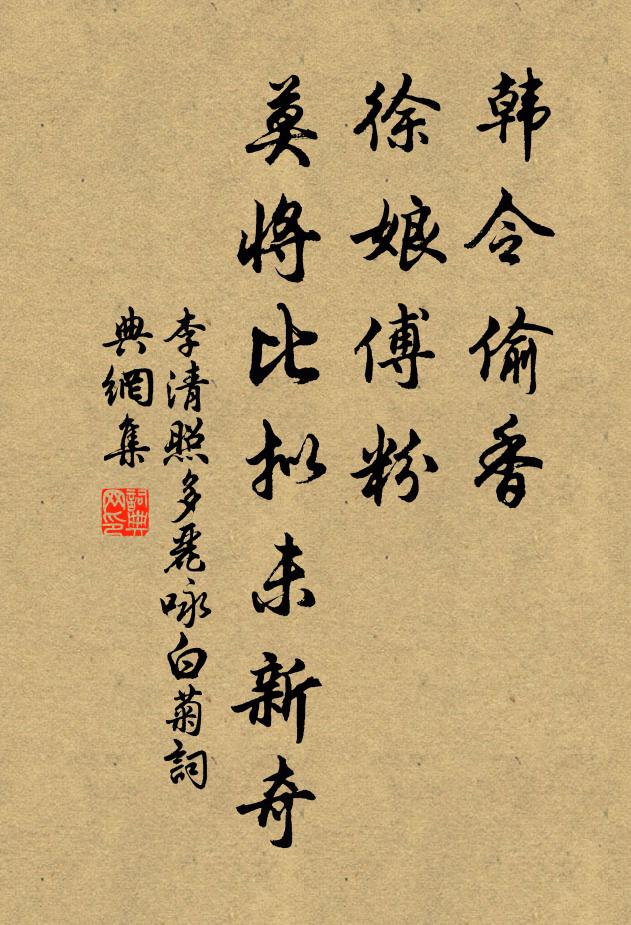 韩令偷香
徐娘傅粉
莫將比拟未新奇
李清照多麗咏白菊詞
典網集
詞典网印